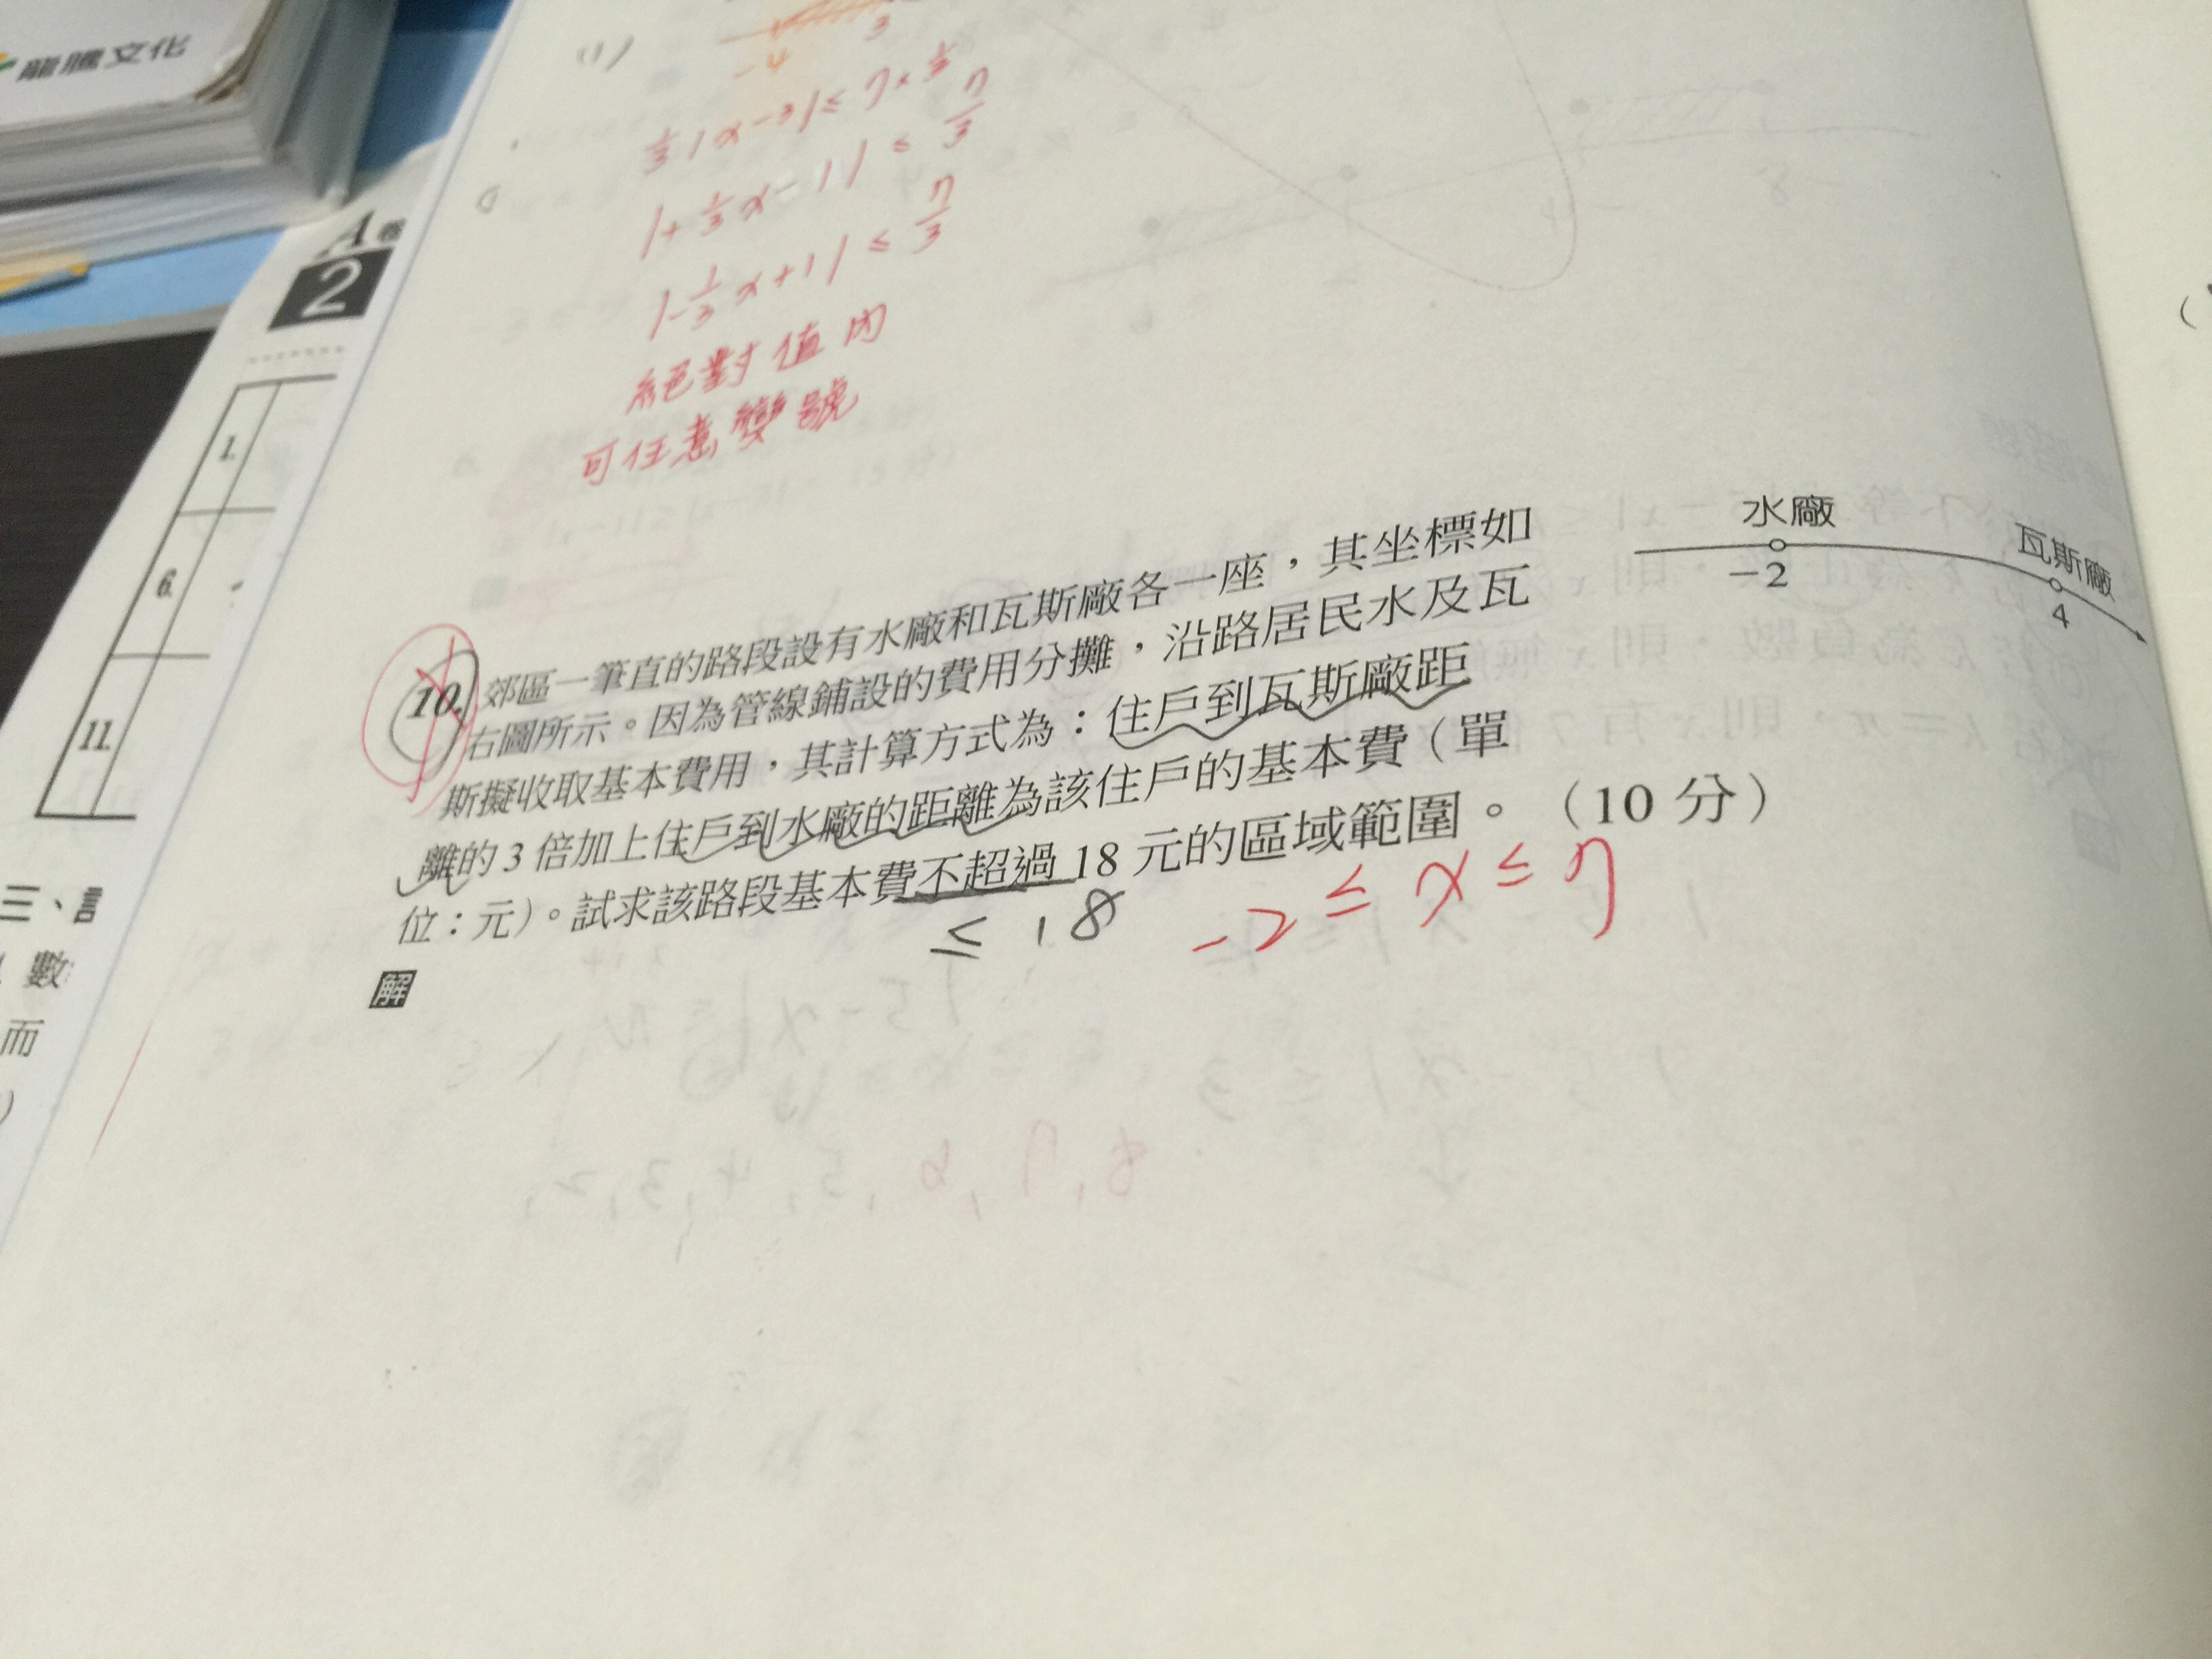 龍騰文化
(1)
-4
3
⅓|x-3|≤7×⅓
|+⅓x-1|≤7/3
|-⅓x+1|≤7/3
絕對值內
可任意變號
A卷
2
1.
6.
11.
水廠
瓦斯廠
-2
4
10. 郊區一筆直的路段設有水廠和瓦斯廠各一座，其坐標如
右圖所示。因為管線鋪設的費用分攤，沿路居民水及瓦
斯擬收取基本費用，其計算方式為：住戶到瓦斯廠距
離的 3 倍加上住戶到水廠的距離為該住戶的基本費（單
位：元）。試求該路段基本費不超過 18 元的區域範圍。（10 分）
≤ 18
-2 ≤ x ≤ 7
解
三、
數
而